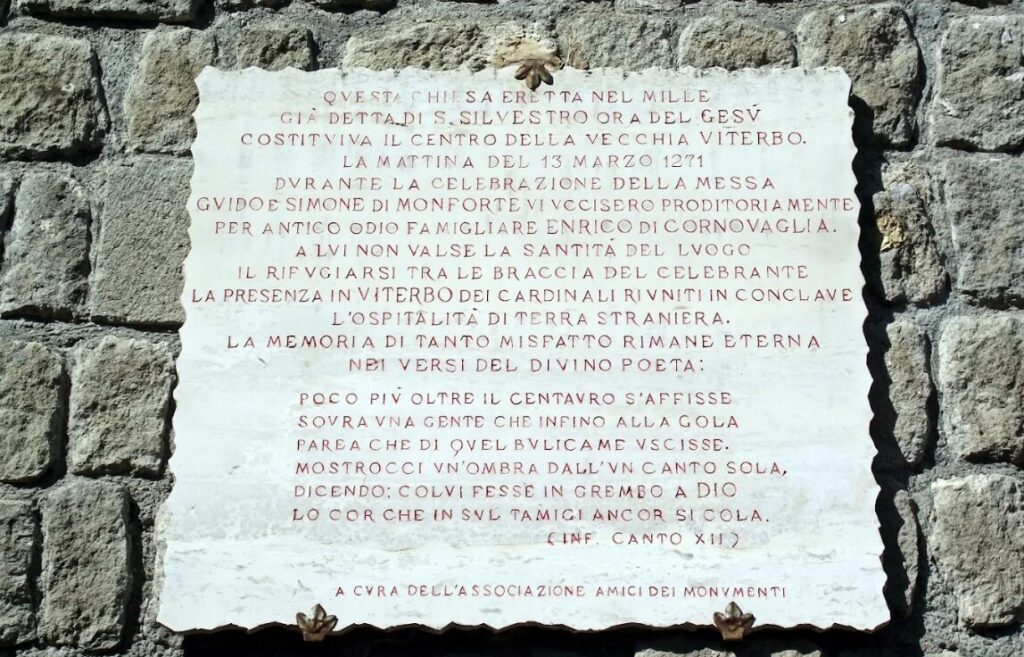 QVESTA CHIESA ERETTA NEL MILLE
GIÀ DETTA DI S. SILVESTRO ORA DEL GESÙ
COSTITVIVA IL CENTRO DELLA VECCHIA VITERBO.
LA MATTINA DEL 13 MARZO 1271
DVRANTE LA CELEBRAZIONE DELLA MESSA
GVIDO E SIMONE DI MONFORTE VI VCCISERO PRODITORIAMENTE
PER ANTICO ODIO FAMIGLIARE ENRICO DI CORNOVAGLIA.
A LVI NON VALSE LA SANTITÀ DEL LVOGO
IL RIFVGIARSI TRA LE BRACCIA DEL CELEBRANTE
LA PRESENZA IN VITERBO DEI CARDINALI RIVNITI IN CONCLAVE
L'OSPITALITÀ DI TERRA STRANIERA.
LA MEMORIA DI TANTO MISFATTO RIMANE ETERNA
NEI VERSI DEL DIVINO POETA:
POCO PIV̀ OLTRE IL CENTAVRO S'AFFISSE
SOVRA VNA GENTE CHE INFINO ALLA GOLA
PAREA CHE DI QVEL BVLICAME VSCISSE.
MOSTROCCI VN'OMBRA DALL'VN CANTO SOLA,
DICENDO: COLVI FESSE IN GREMBO A DIO
LO COR CHE IN SVL TAMIGI ANCOR SI COLA.
(INF. CANTO XII)
A CVRA DELL'ASSOCIAZIONE AMICI DEI MONVMENTI